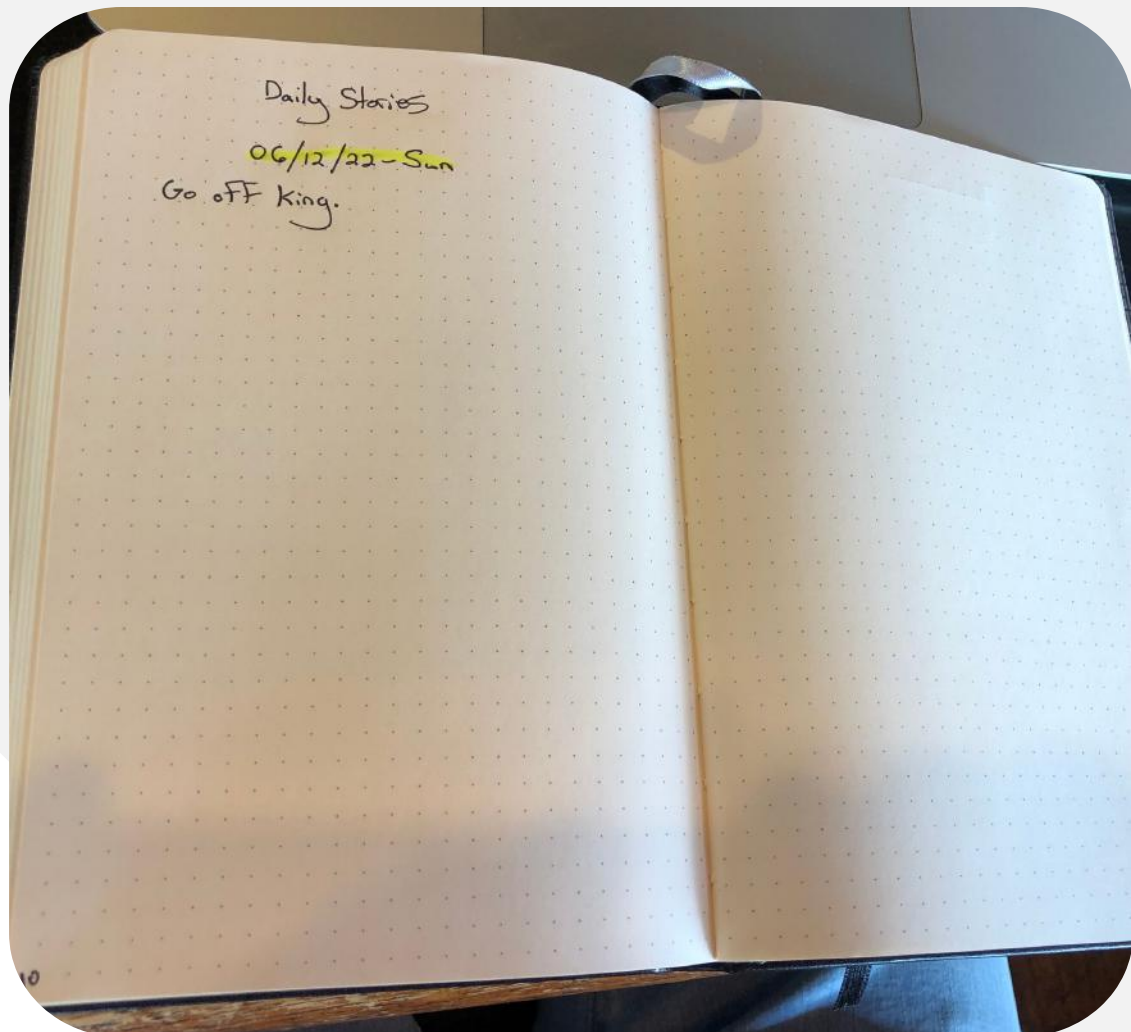 Daily Stories
06/12/22-Sun
Go off King.